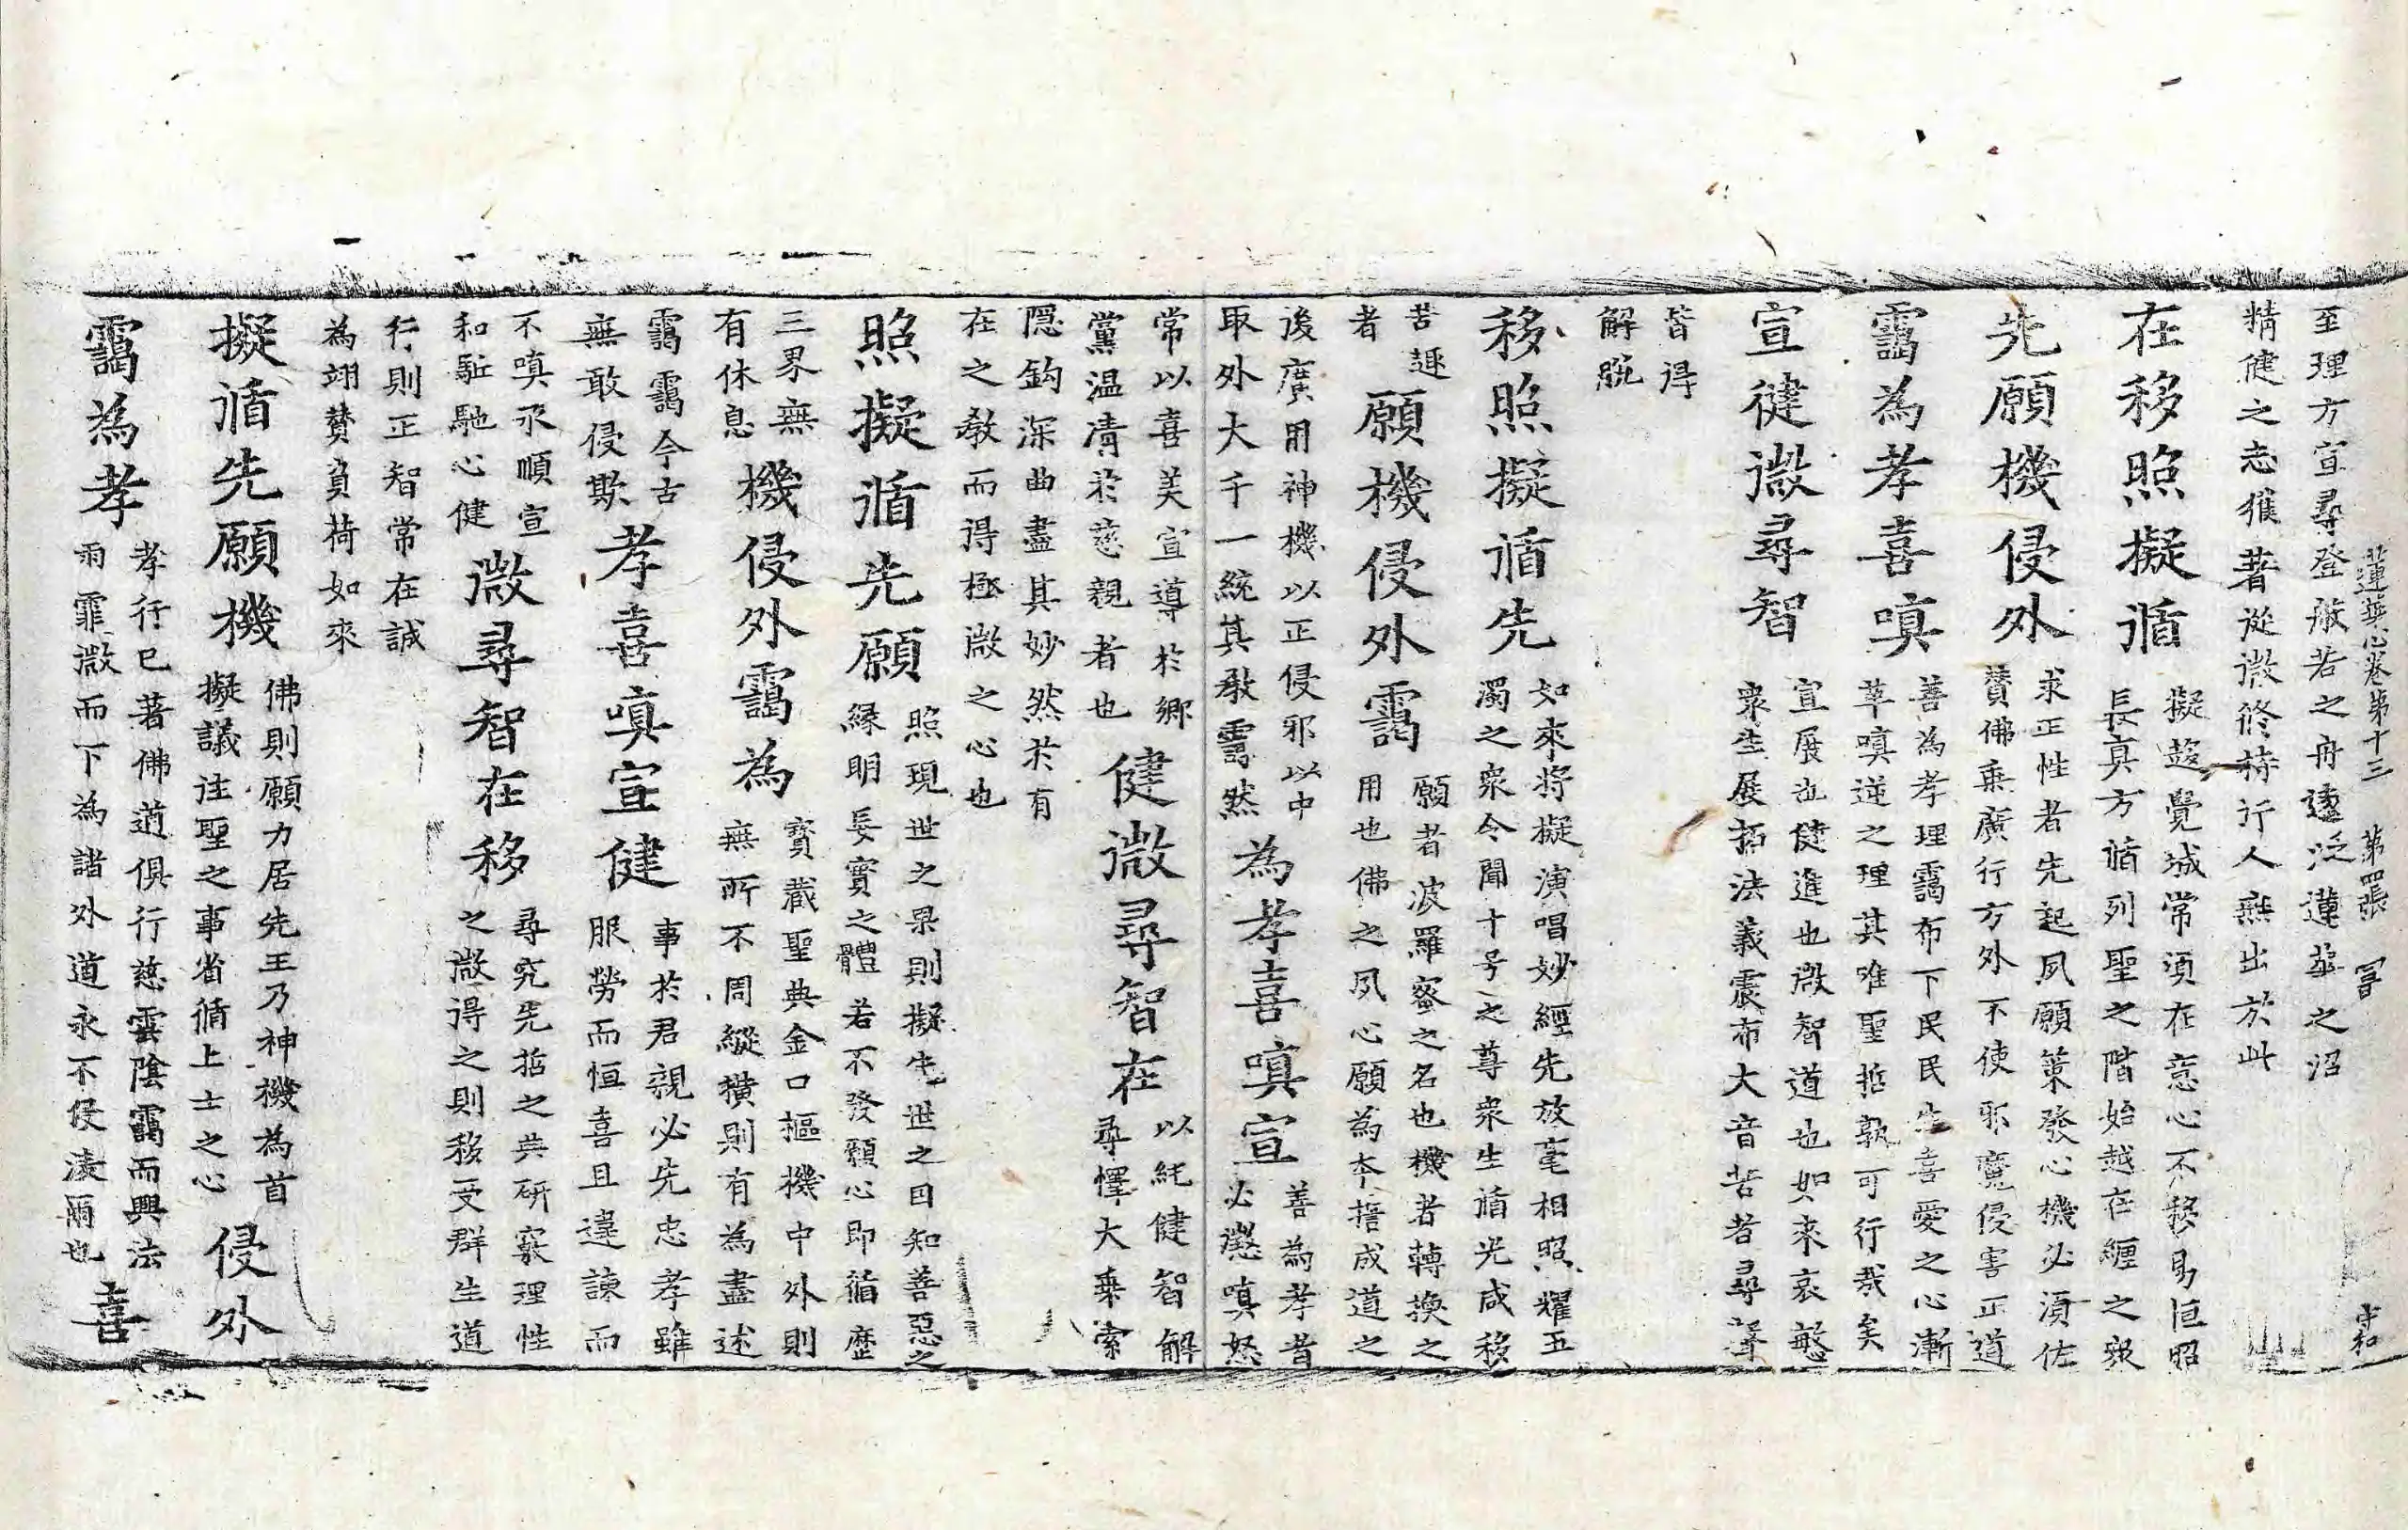 至理方宣尋登般若之舟遽泛蓮華之沼
精健之志獲著從微修持行人無出於此
蓮華心卷第十三 第四張 中和
在移照擬循
擬趍覺城常須在意心不移易恒昭
長真方循列聖之階始越在纏之衆
先願機侵外
求正性者先起夙願策發心機必須佐
賛佛乗廣行方外不使邪魔侵害正道
靄為孝喜嗔
善為孝理靄布下民民生喜愛之心漸
革嗔逆之理其唯聖哲孰可行哉矣
宣健微尋智
宣展也健進也微智道也如来哀愍
衆生展拓法義震布大音苦者尋聲
皆得
解脫
移照擬循先
如來將擬演唱妙經先放毫相照耀五
濁之衆令聞十号之尊衆生循光咸移
苦趣
者
願機侵外靄
願者波羅蜜之名也機者轉換之
用也佛之夙心願為本擔成道之
後廣用神機以正侵邪以中
取外大千一統其敎靄然
為孝喜嗔宣
善為孝者
必懲嗔怒
常以喜美宣導於鄉
黨温凊於慈親者也
健微尋智在
以純健智解
尋懌大乗索
隱鈎深曲盡其妙然於有
在之教而得極微之心也
照擬循先願
照現世之果則擬生世之因知善惡之
緣明妄實之體若不發願心即循歷
三界無
有休息
機侵外靄為
寳藏聖典金口樞機中外則
無所不周縱橫則有為盡述
靄靄今古
無敢侵欺
孝喜嗔宣健
事於君親必先忠孝雖
服勞而恒喜且違諫而
不嗔承順宣
和馳心健
微尋智在移
尋究先哲之典研窮理性
之微得之則移受群生道
行則正智常在誠
為翊賛負荷如來
擬循先願機
佛則願力居先王乃神機為首
擬議注聖之事省循上士之心
侵外
靄為孝
孝行已著佛道俱行慈雲陰靄而興法
雨霏微而下為諸外道永不侵凌爾也
喜